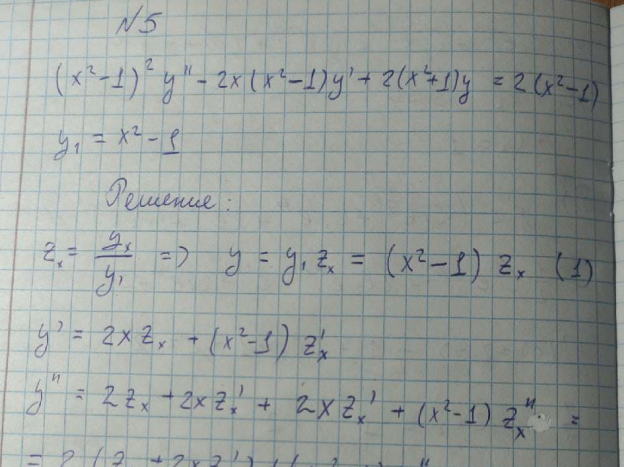 №5
(x² - 1)² y'' - 2x(x² - 1)y' + 2(x²+1)y = 2(x²-1)
y₁ = x² - 1
Решение:
zₓ = yₓ/y₁ => y = y₁ zₓ = (x² - 1) zₓ (1)
y' = 2x zₓ + (x² - 1) zₓ'
y'' = 2zₓ + 2x zₓ' + 2x zₓ' + (x² - 1) zₓ'' =